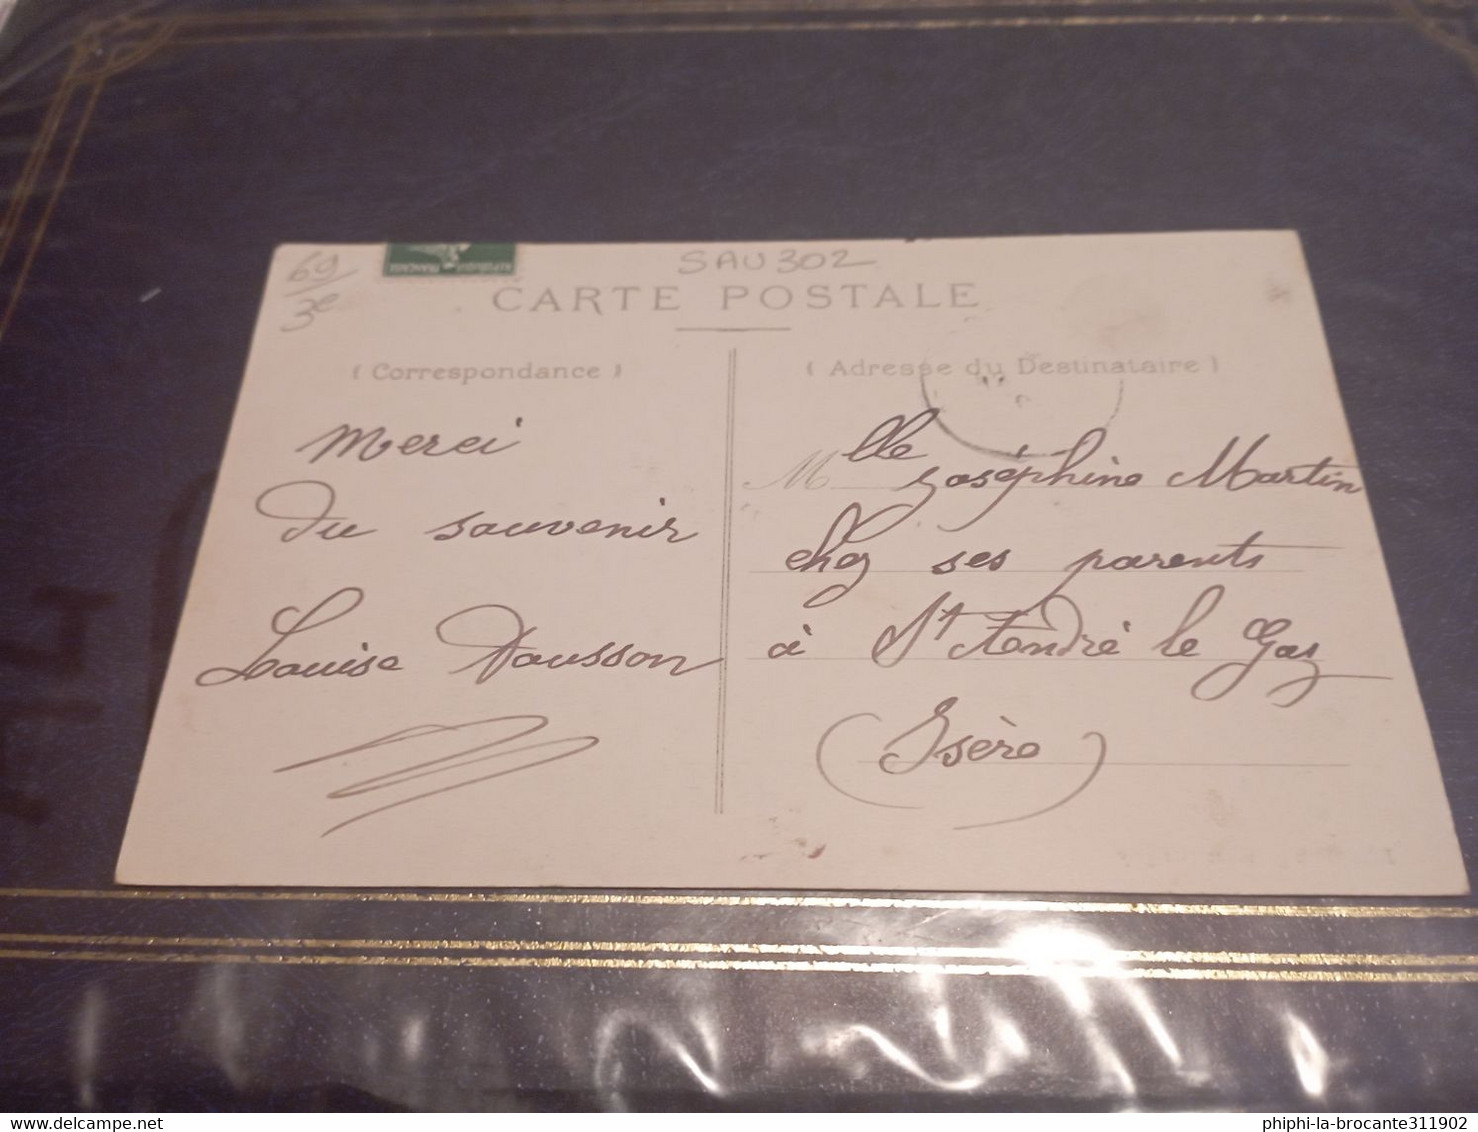 69
3e
REPUBLIQUE FRANÇAISE
SAU 302
CARTE POSTALE
( Correspondance )
Merci
du souvenir
Louise
( Adresse du Destinataire )
Mlle Joséphine Martin
chez ses parents
à St André le Gaz
(Isère)
phiphi-la-brocante311902